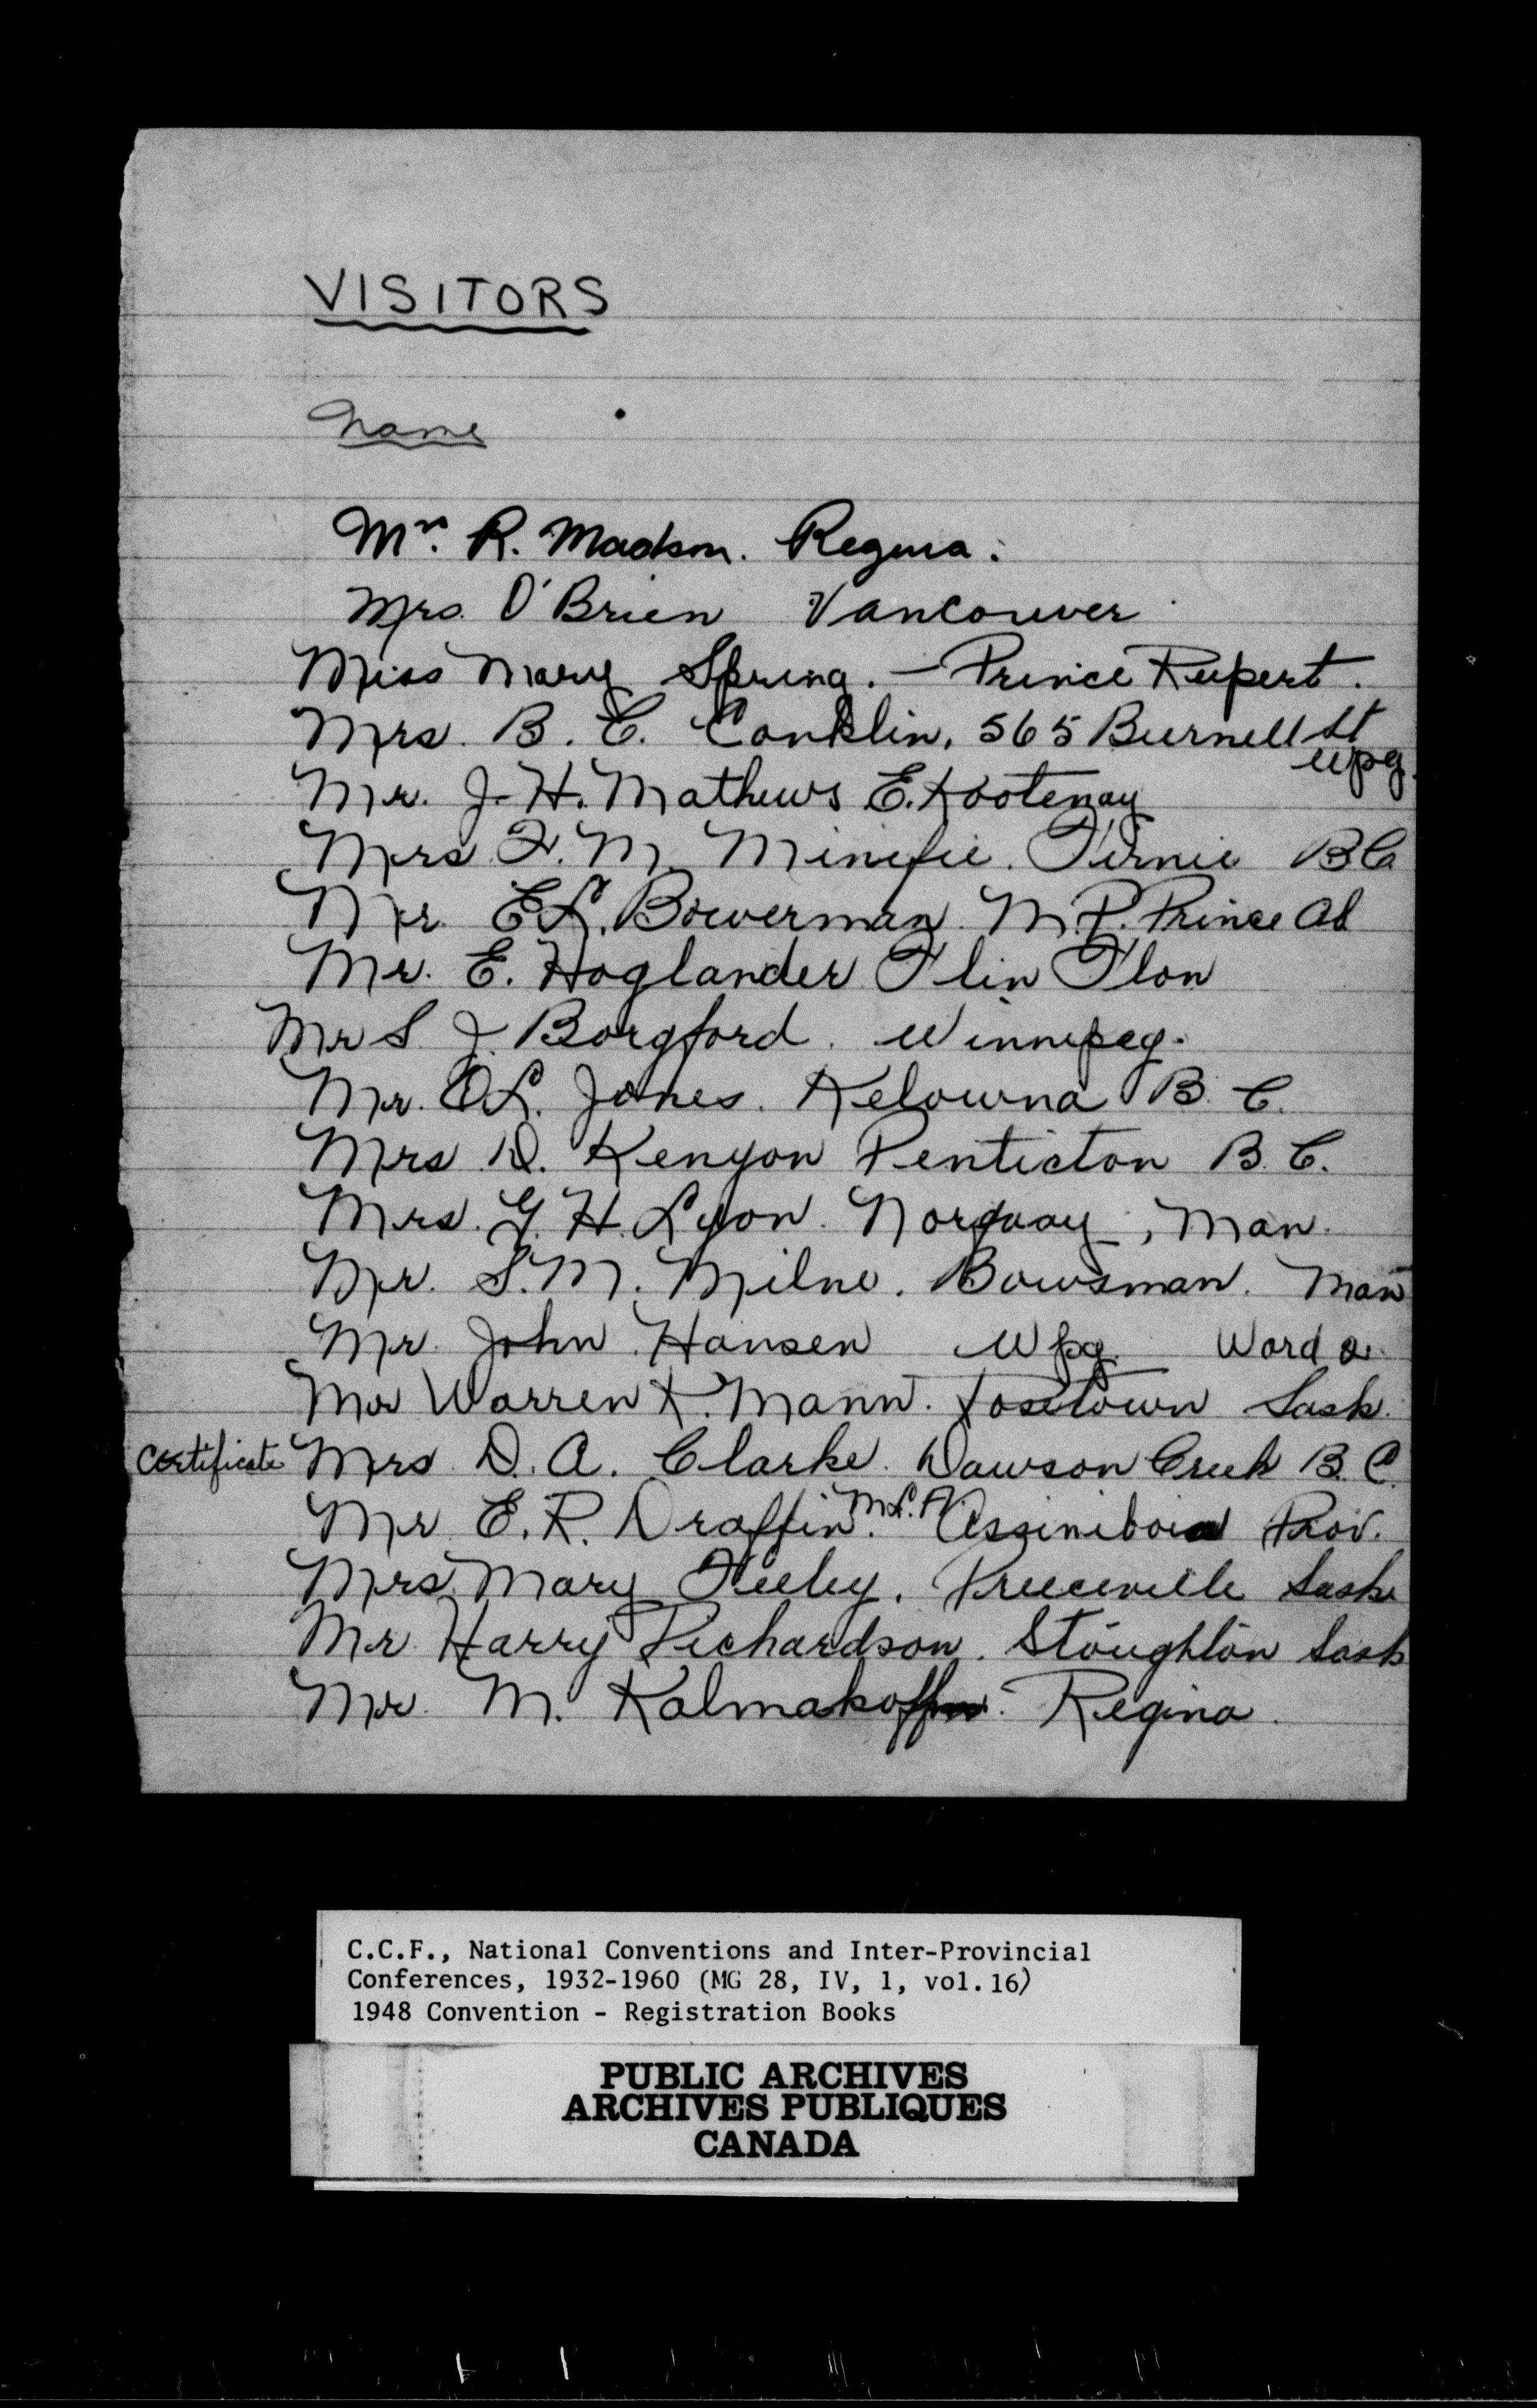 VISITORS
Name
Mrs. R. Madson. Regina.
Mrs. O'Brien Vancouver
Miss Mary Spring. - Prince Rupert.
Mrs. B. C. Conklin, 565 Burnell St
Wpg.
Mr. J. H. Mathews E. Kootenay
Mrs F. M. Minifie. Fernie BC
Mr. E L. Bowerman. M.P. Prince Al
Mr. E. Hoglander Flin Flon
Mr S. J. Borgford. Winnipeg.
Mr. O L. Jones. Kelowna B. C.
Mrs D. Kenyon Penticton B. C.
Mrs. G. H. Lyon. Norquay, Man.
Mr. S. M. Milne. Bowsman. Man
Mr. John Hansen Wpg. Ward 2.
Mr Warren K. Mann. Rosetown Sask.
Certificate Mrs D. A. Clarke. Dawson Creek B. C.
Mr E. R. Draffin M.L.A. Assiniboia Prov.
Mrs. Mary Feeley. Preeceville Sask
Mr Harry Richardson. Stoughton Sask
Mr. M. Kalmakoff. Regina.
C.C.F., National Conventions and Inter-Provincial
Conferences, 1932-1960 (MG 28, IV, 1, vol. 16)
1948 Convention - Registration Books
PUBLIC ARCHIVES
ARCHIVES PUBLIQUES
CANADA